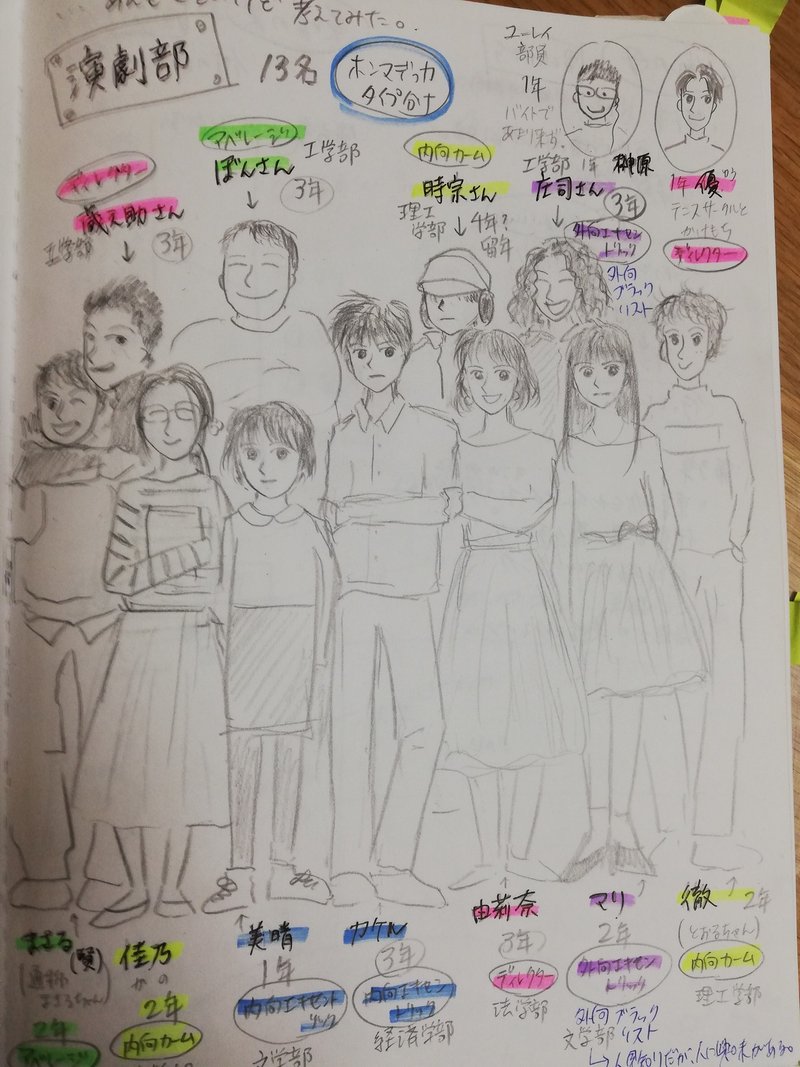 考えてみた。
演劇部
13名
ホンマデッカ
タイプ分け
ユーレイ
部員
1年
バイトで
あまり来ず。
工学部 1年 榊原
1年 優
テニスサークルと
かけもち
ディレクター
ディレクター
蔵之助さん
工学部
3年
アベレージ
ぼんさん
工学部
3年
内向カーム
時宗さん
理工
学部
4年?
留年
庄司さん
3年
外向エキセン
トリック
外向
ブラック
リスト
まさる
(賢)
2年
アベレージ
佳乃
かの
2年
内向カーム
美晴
1年
内向エキセント
リック
文学部
カケル
3年
内向エキセン
トリック
経済学部
由莉奈
3年
ディレクター
法学部
マリ
2年
外向エキセン
トリック
外向ブラック
文学部 リスト
人見知りだが、人に興味がある。
徹 2年
(とおるちゃん)
内向カーム
理工学部